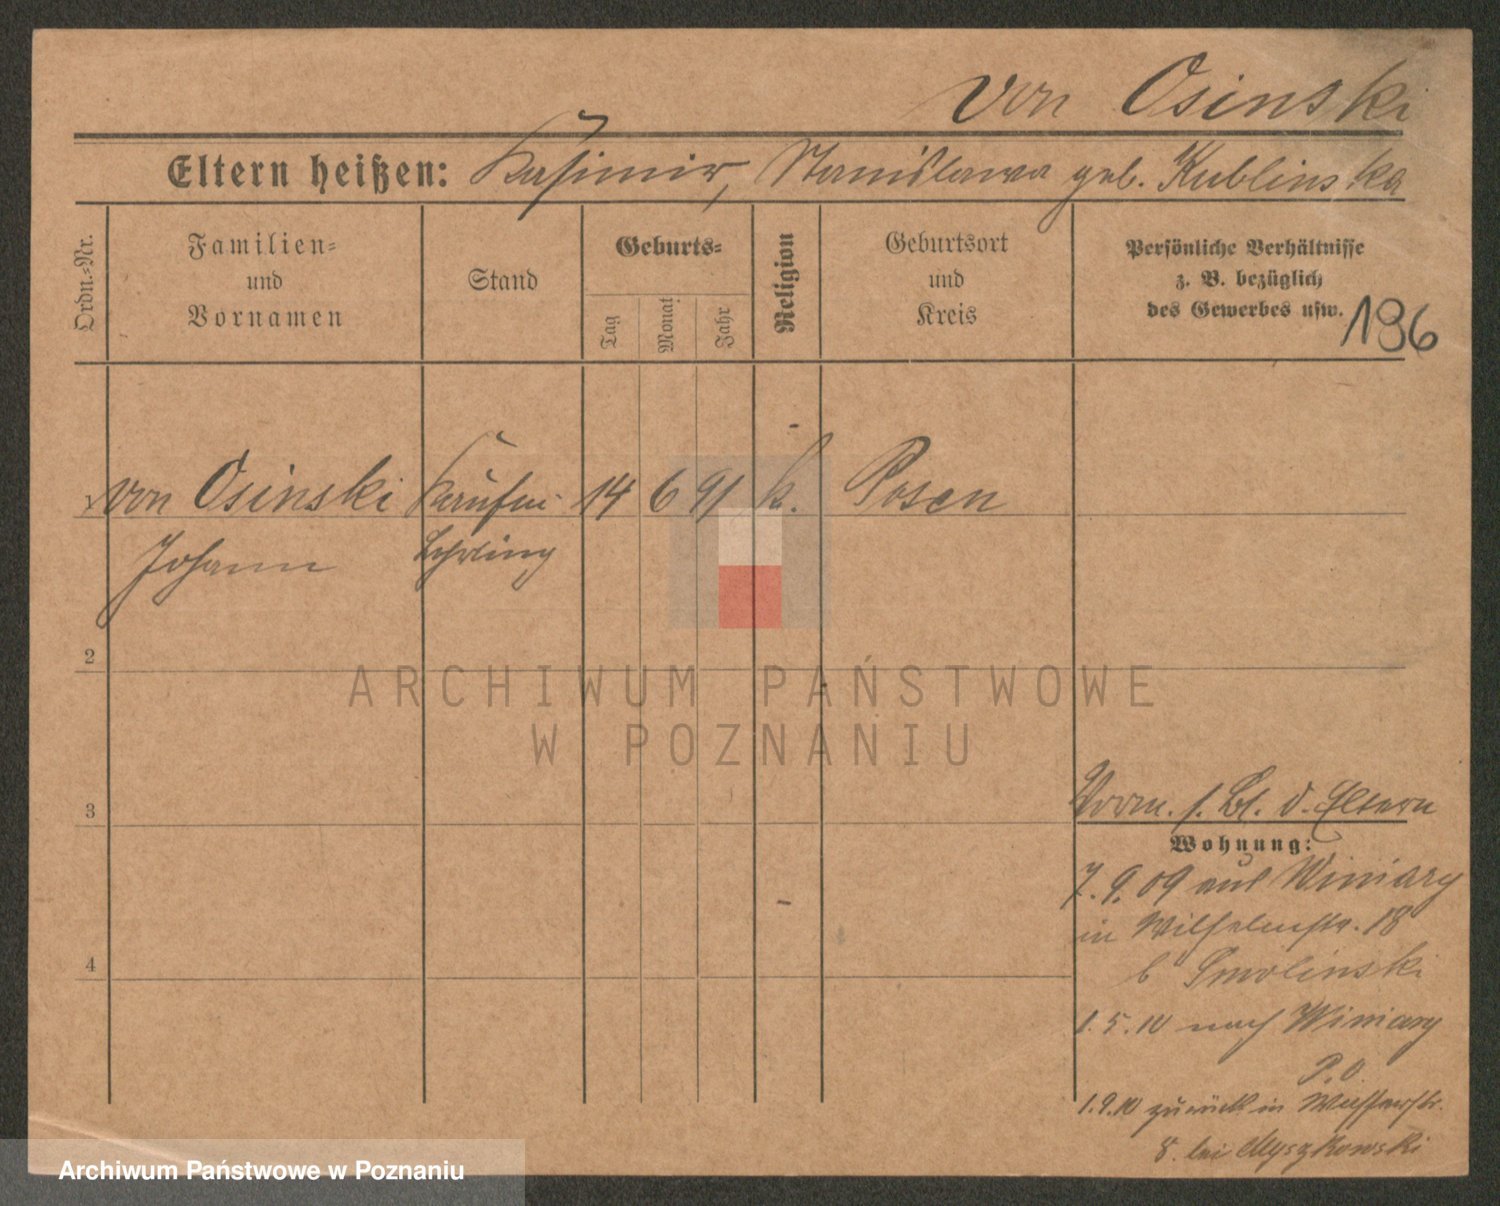 von Osinski
Eltern heißen: Kasimir, Stanislawa geb. Kublinska
Ordn.-Nr.
Familien-
und
Vornamen
Stand
Geburts-
Tag
Monat
Jahr
Religion
Geburtsort
und
Kreis
Persönliche Verhältnisse
z. B. bezüglich
des Gewerbes usw.
196
von Osinski Kaufm. 14 6 91 k. Posen
Johann Lehrling
2
3
4
Vorm. s. Bl. d. Eltern
Wohnung:
7.9.09 aus Winiary
in Wilhelmstr. 18
b Smolinski
1.5.10 nach Winiary
P.O.
1.9.10 zurück in
8. bei Myszkowski
ARCHIWUM PAŃSTWOWE
W POZNANIU
Archiwum Państwowe w Poznaniu